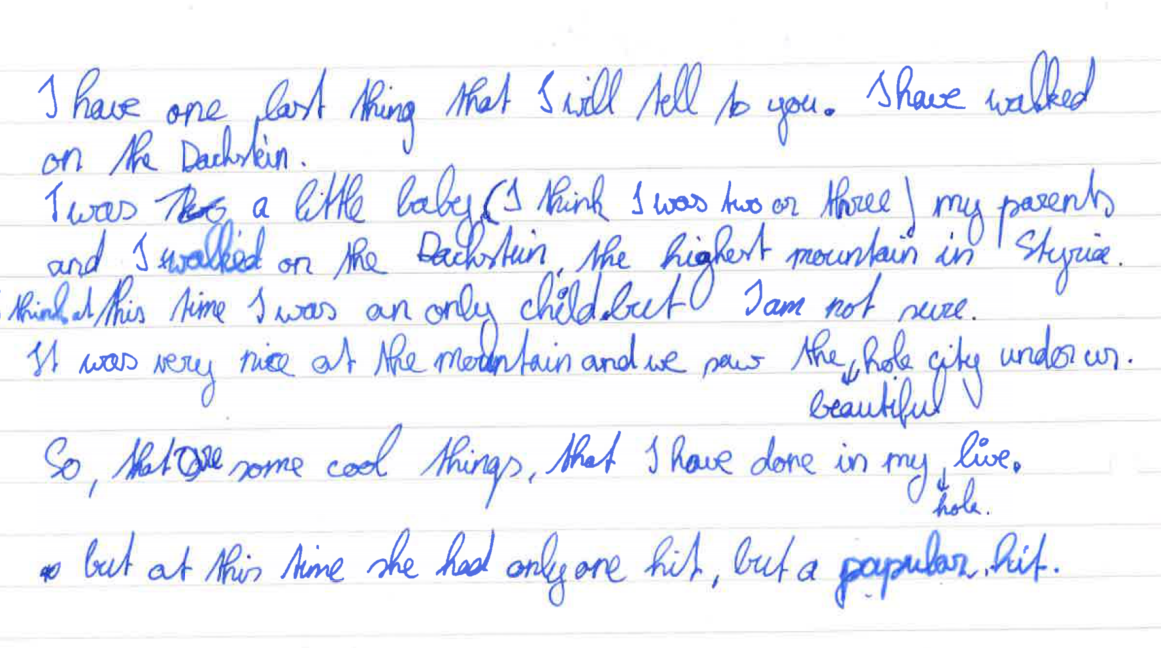 I have one last thing that I will tell to you. I have walked
on the Dachstein.
I was a little baby, (I think I was two or three) my parents
and I walked on the Dachstein, the highest mountain in Styria.
think at this time I was an only child, but I am not sure.
It was very nice at the mountain and we saw the hole city under us.
beautiful
So, that are some cool things, that I have done in my live.
hole.
but at this time she had only one hit, but a popular hit.